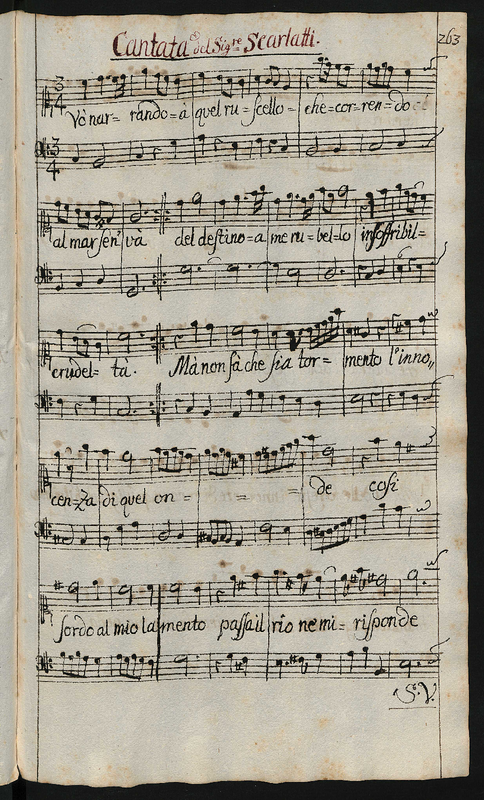 Cantata del Sig.re Scarlatti.
263
Vò nar= rando=à quel ru= scello= che=cor=ren=do=
al mar sen' và del destino=a me ru=bel=lo insoffribil=
crudel= tà. Mà non fà che sia tor= mento l'inno,,
cen=za di quel on = = = de cosi
sordo al mio lamento passa il rio ne mi= risponde
S. V.